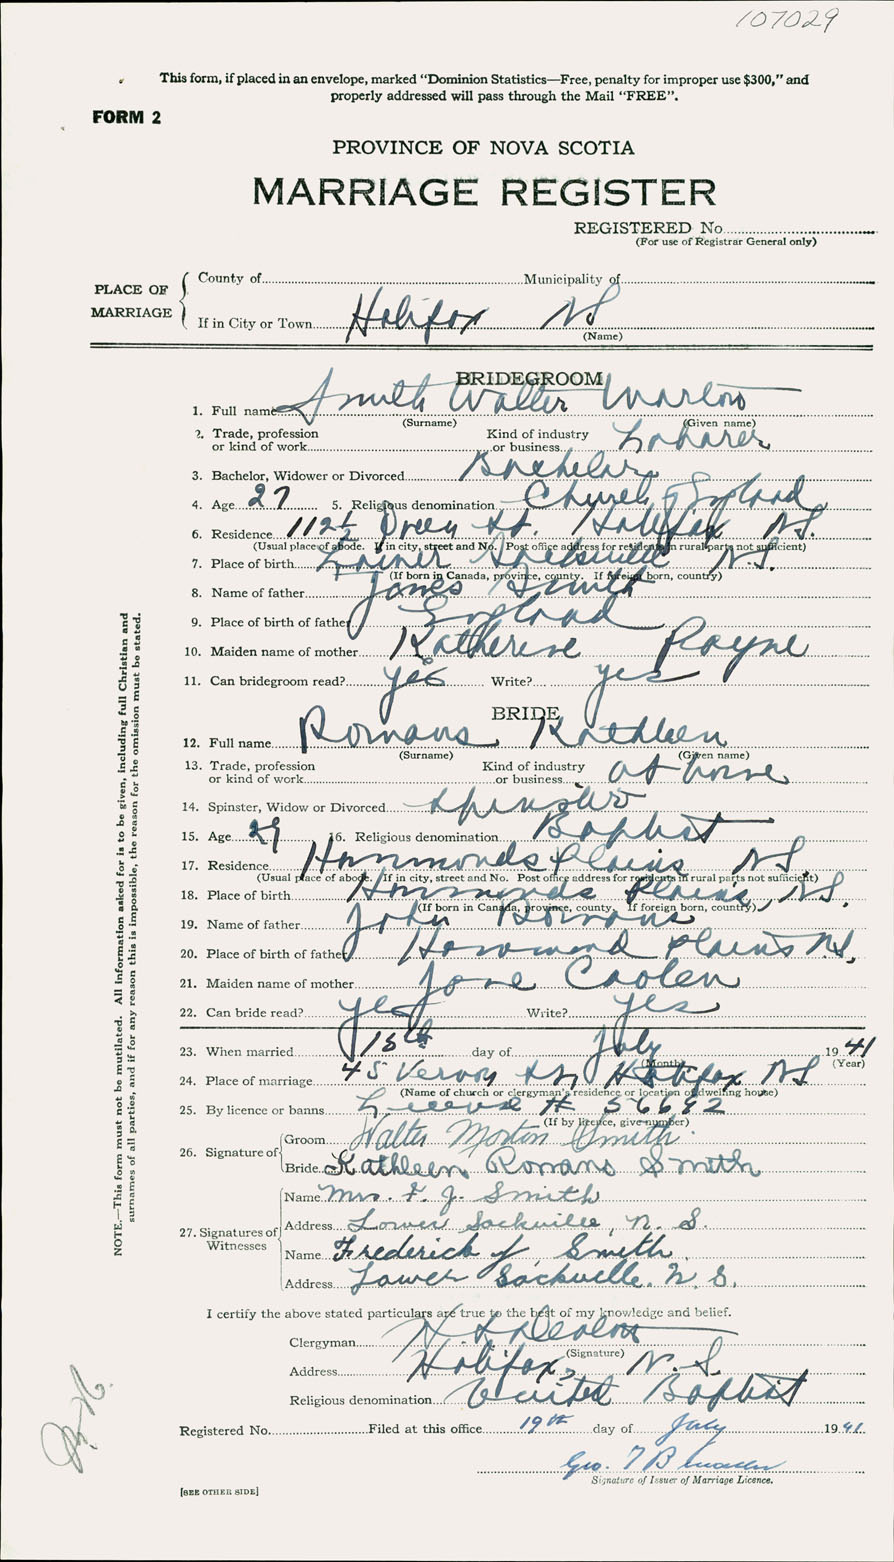 107029
This form, if placed in an envelope, marked "Dominion Statistics—Free, penalty for improper use $300," and
properly addressed will pass through the Mail "FREE".
FORM 2
PROVINCE OF NOVA SCOTIA
MARRIAGE REGISTER
REGISTERED No.
(For use of Registrar General only)
PLACE OF MARRIAGE
County of Municipality of
If in City or Town Halifax NS
(Name)
BRIDEGROOM
1. Full name Smith Walter
(Surname) (Given name)
2. Trade, profession or kind of work Kind of industry or business Laborer
3. Bachelor, Widower or Divorced Bachelor
4. Age 27 5. Religious denomination Church of England
6. Residence 112½ St. Halifax N.S.
(Usual place of abode. If in city, street and No. Post office address for residents in rural parts not sufficient)
7. Place of birth Lower Sackville N.S.
(If born in Canada, province, county. If foreign born, country)
8. Name of father James Smith
9. Place of birth of father England
10. Maiden name of mother Katherine Payne
11. Can bridegroom read? yes Write? yes
BRIDE
12. Full name Romans Kathleen
(Surname) (Given name)
13. Trade, profession or kind of work Kind of industry or business at home
14. Spinster, Widow or Divorced Spinster
15. Age 29 16. Religious denomination Baptist
17. Residence Hammonds Plains N.S.
(Usual place of abode. If in city, street and No. Post office address for residents in rural parts not sufficient)
18. Place of birth Hammonds Plains, N.S.
(If born in Canada, province, county. If foreign born, country)
19. Name of father John Romans
20. Place of birth of father Hammond Plains N.S.
21. Maiden name of mother Jane Coolen
22. Can bride read? yes Write? yes
23. When married day of July 1941
(Month) (Year)
24. Place of marriage 45 Vernon St, Halifax NS
(Name of church or clergyman's residence or location of dwelling house)
25. By licence or banns License # 56692
(If by licence, give number)
26. Signature of
Groom Walter Morton Smith
Bride Kathleen Romans Smith
27. Signatures of Witnesses
Name Mrs. F. J. Smith
Address Lower Sackville, N. S.
Name Frederick J. Smith
Address Lower Sackville. N. S.
I certify the above stated particulars are true to the best of my knowledge and belief.
Clergyman
(Signature)
Address Halifax, N. S.
Religious denomination United Baptist
Registered No. Filed at this office 19th day of July 1941.
Geo. T B
Signature of Issuer of Marriage Licence.
[SEE OTHER SIDE]
NOTE.—This form must not be mutilated. All information asked for is to be given, including full Christian and
surnames of all parties, and if for any reason this is impossible, the reason for the omission must be stated.